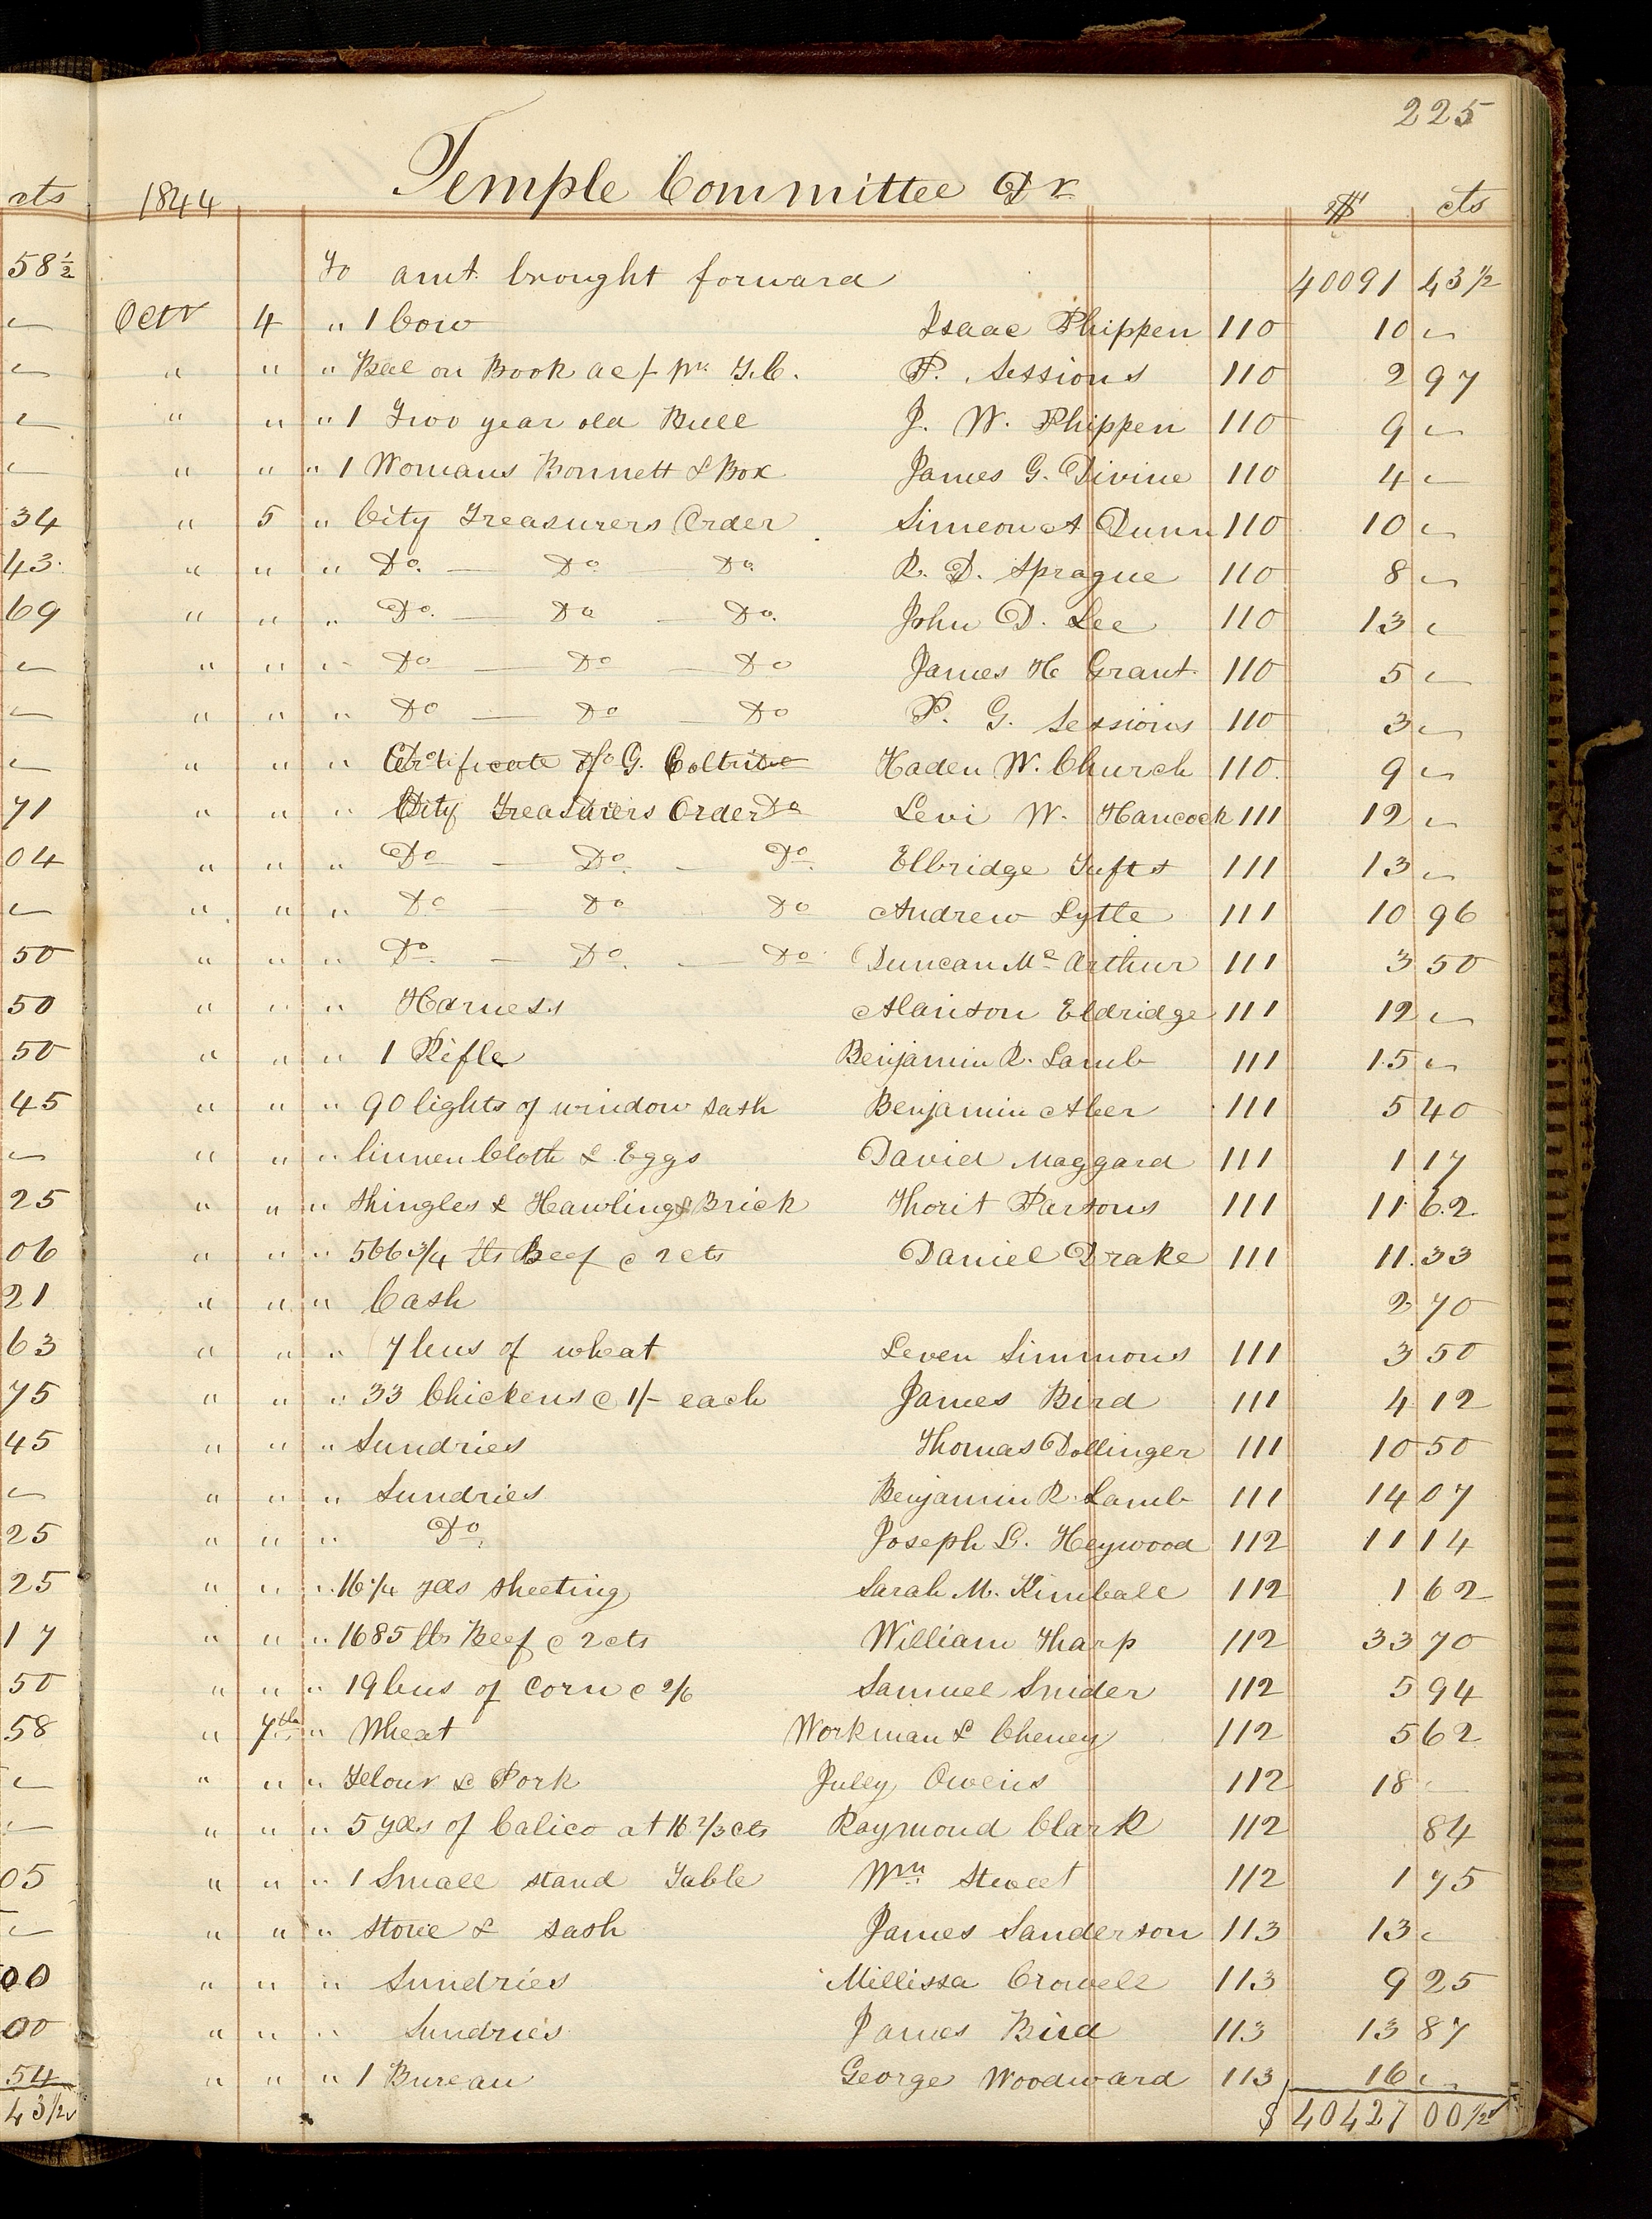 225
Temple Committee Dr
cts 1844 $ cts
58½ To amt. brought forward 40091 43½
Octr 4 " 1 Cow Isaac Phippen 110 10 –
" " " Bal on Book ac/ pr. T.C. P. Sessions 110 2 97
" " " 1 Two year old Bull J. W. Phippen 110 9 –
" " " 1 Womans Bonnett & Box James G. Divine 110 4 –
34 " 5 " City Treasurers Order Simeon A Dunn 110 10 –
43 " " " Do. — Do — Do. R. D. Sprague 110 8 –
69 " " " Do. — Do — Do. John D. Lee 110 13 –
" " " Do — Do — Do James H Grant 110 5 –
" " " Do — Do — Do P. G. Sessions 110 3 –
" " " Certificate of G. Coltrine Haden W. Church 110 9 –
71 " " " City Treasurers Order Do Levi W. Hancock 111 12 –
04 " " " Do — Do. — Do. Elbridge Tufts 111 13 –
" " " Do — Do Do Andrew Lytle 111 10 96
50 " " " Do. — Do. — Do Duncan Mc Arthur 111 3 50
50 " " " Harness Alanson Eldridge 111 12 –
50 " " " 1 Rifle Benjamin R. Lamb 111 15 –
45 " " " 90 lights of window sash Benjamin Aber 111 5 40
" " " linnen Cloth & Eggs David Maggard 111 1 17
25 " " " Shingles & Hawling Brick Thorit Parsons 111 11 62
06 " " " 566 3/4 lbs Beef @ 2 cts Daniel Drake 111 11 33
21 " " " Cash 2 70
63 " " " 7 bus of wheat Leven Simmons 111 3 50
75 " " " 33 Chickens @ 1/- each James Bird 111 4 12
45 " " " Sundries Thomas Dollinger 111 10 50
" " " Sundries Benjamin R. Lamb 111 14 07
25 " " " Do. Joseph L. Heywood 112 11 14
25 " " " 16 1/4 yds sheeting Sarah M. Kimball 112 1 62
17 " " " 1685 lbs Beef @ 2 cts William Tharp 112 33 70
50 " " " 19 bus of Corn @ 2/6 Samuel Snider 112 5 94
58 " 7th " Wheat Workman & Cheney 112 5 62
" " " Flour & Pork July Owens 112 18 –
" " " 5 yds of Calico at 16 2/3 cts Raymond Clark 112 84
05 " " " 1 Small stand Table Wm. Sweet 112 1 75
" " " stove & sash James Sanderson 113 13 –
00 " " " Sundries Millissa Crowell 113 9 25
00 " " " Sundries James Bird 113 13 87
54 " " " 1 Bureau George Woodward 113 16 –
43½ $ 40427 00½